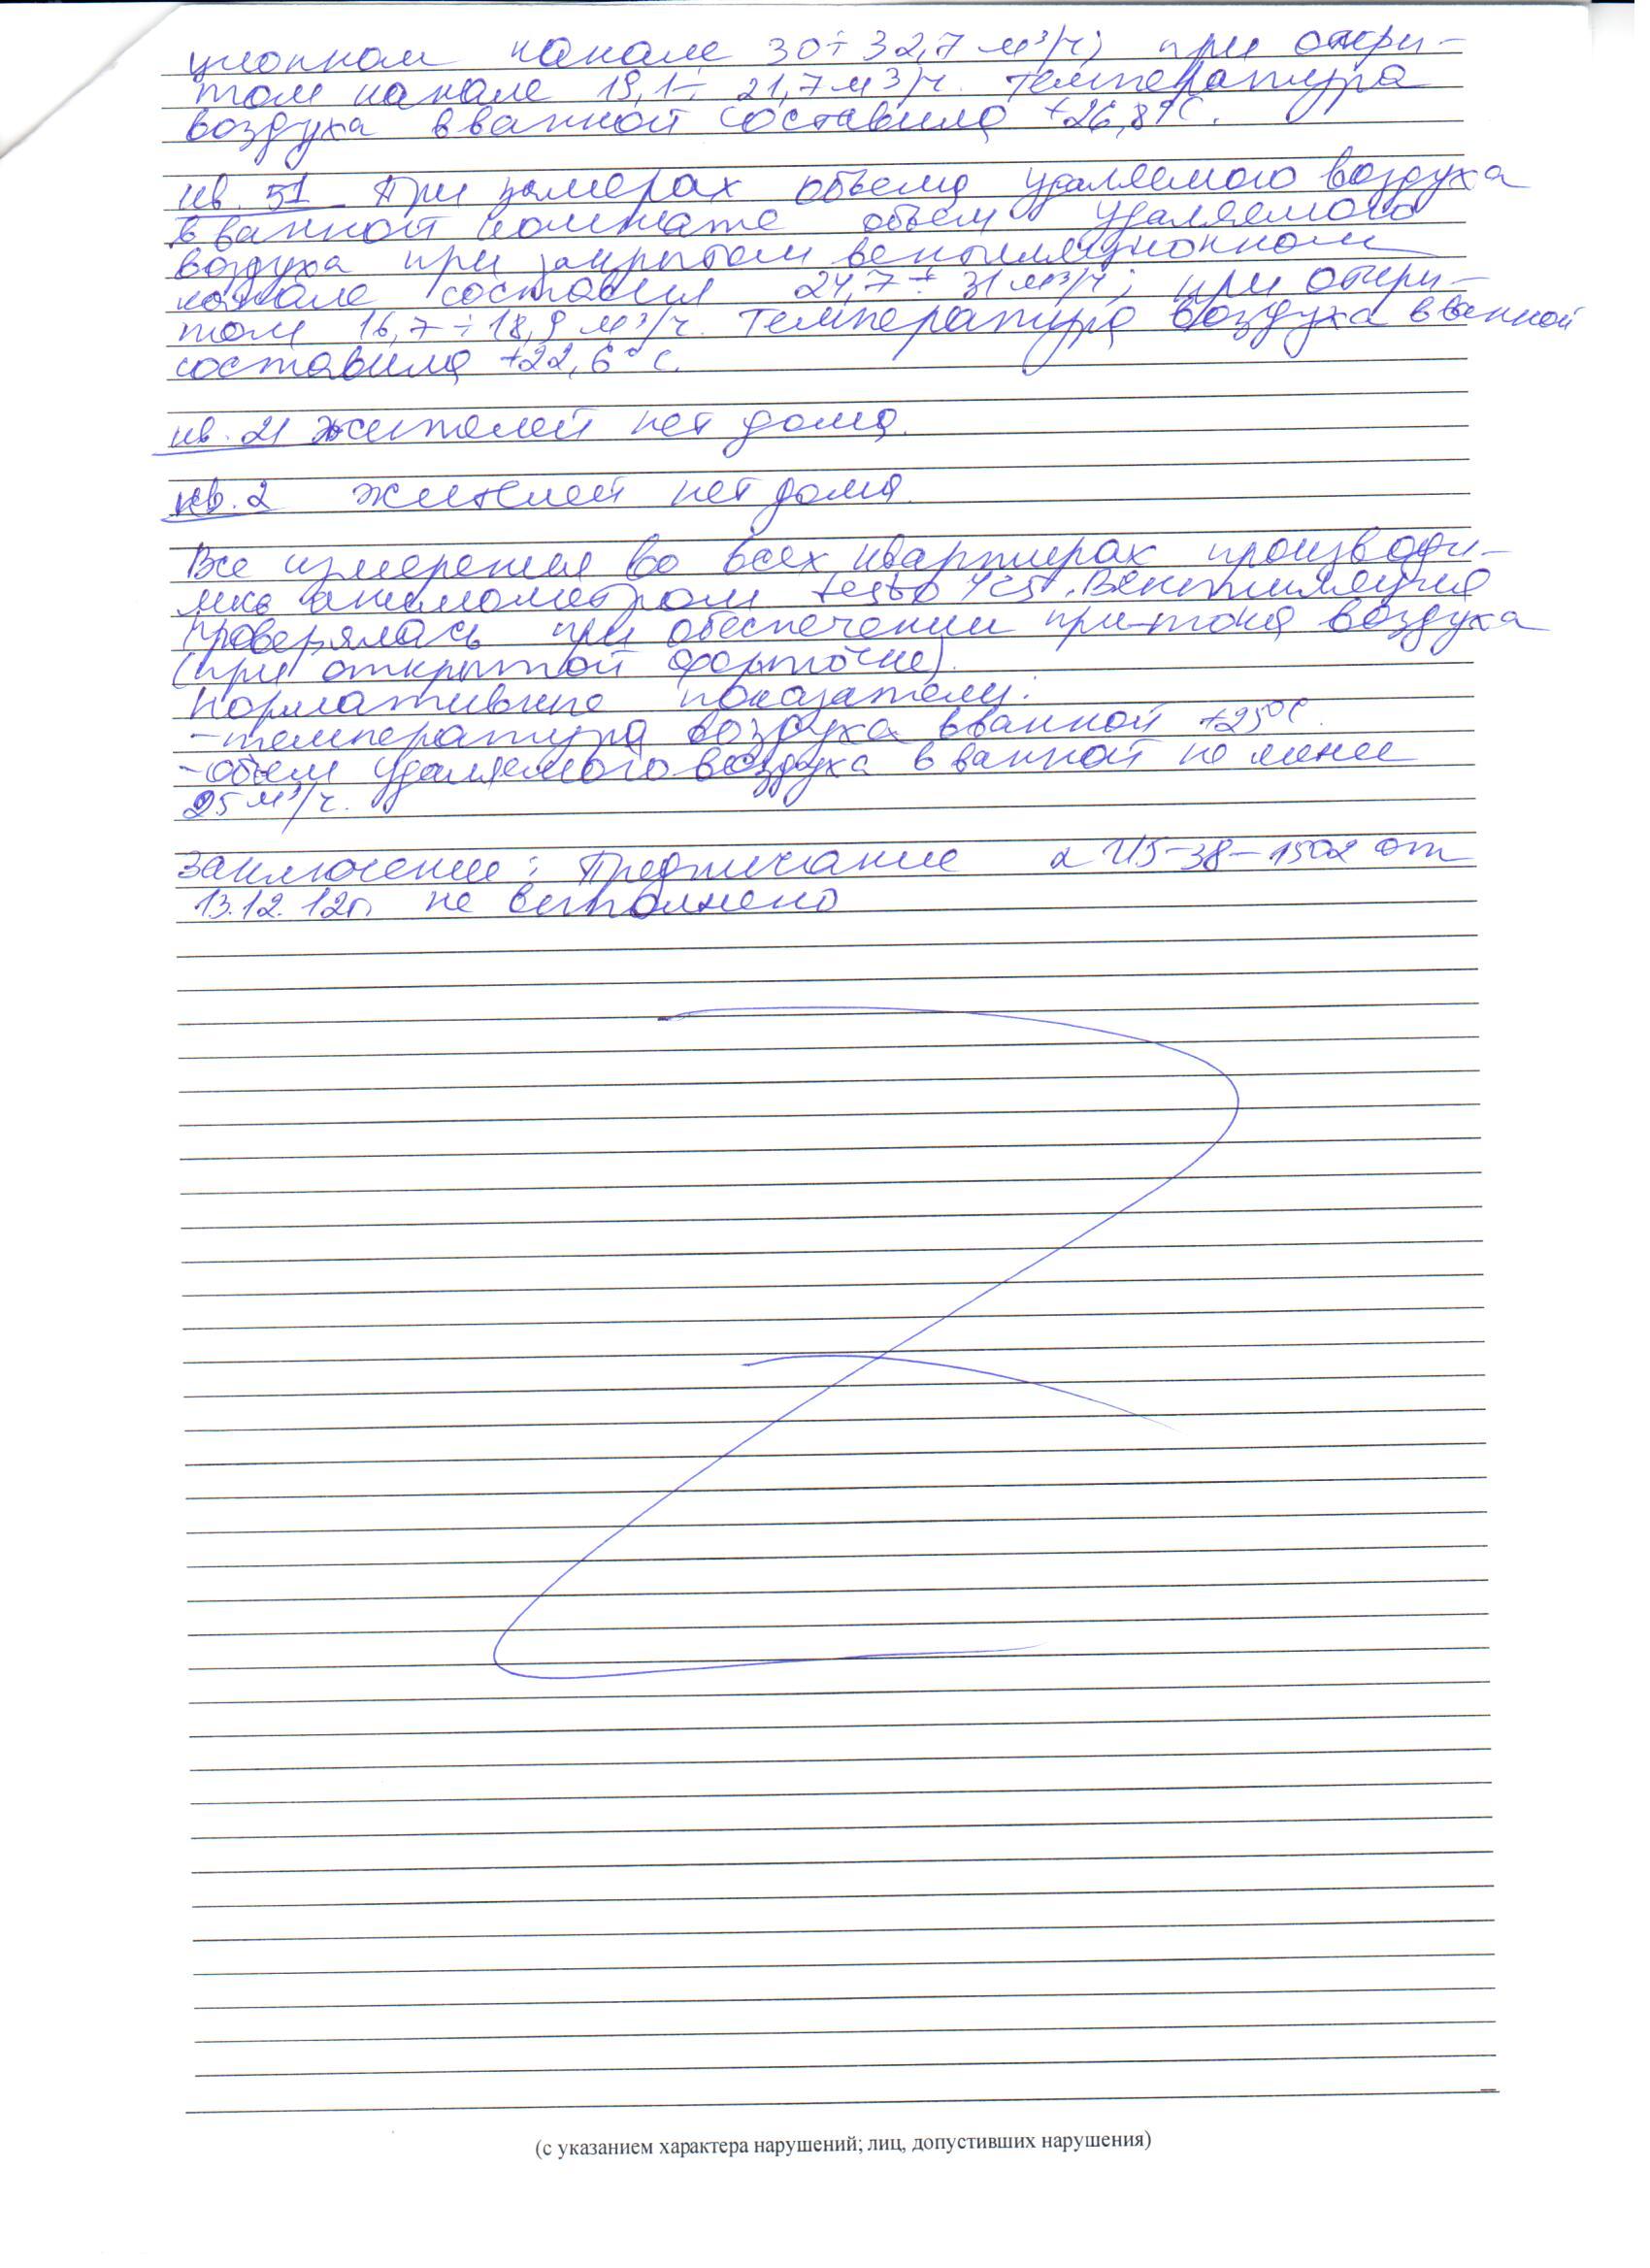 ционном канале 30÷32,7 м³/ч; при откры-
том канале 19,1÷ 21,7 м³/ч. Температура
воздуха в ванной составила +26,8°С.
кв. 51 При замерах объема удаляемого воздуха
в ванной комнате объем удаляемого
воздуха при закрытом вентиляционном
канале составил 24,7÷31 м³/ч; при откры-
том 16,7÷18,9 м³/ч. Температура воздуха в ванной
составила +22,6°С.
кв. 21 жителей нет дома.
кв. 2 жителей нет дома.
Все измерения во всех квартирах производи-
лись анемометром testo 425. Вентиляция
проверялась при обеспечении при-тока воздуха
(при открытой форточке).
Нормативные показатели:
-температура воздуха в ванной +25°С.
-объем удаляемого воздуха в ванной не менее
25 м³/ч.
Заключение: Предписание от
13.12.12г. не выполнено
(с указанием характера нарушений; лиц, допустивших нарушения)